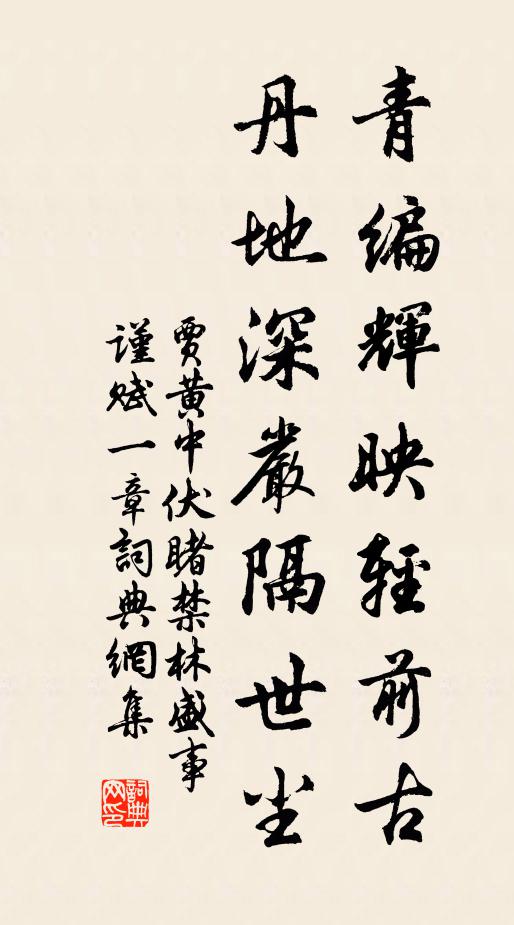 青編輝映輕前古
丹地深嚴隔世尘
賈黄中伏睹禁林盛事
謹赋一章詞典網集
詞典网印